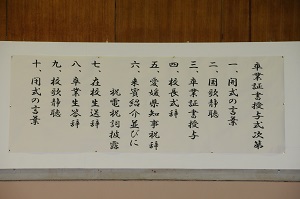 卒業証書授与式次第
一、開式の言葉
二、国歌静聴
三、卒業証書授与
四、校長式辞
五、愛媛県知事祝辞
六、来賓紹介並びに
祝電祝詞披露
七、在校生送辞
八、卒業生答辞
九、校歌静聴
十、閉式の言葉